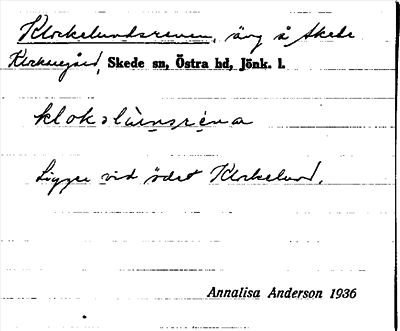 Klockelundsreven, äng å Skede
Klockaregård, Skede sn, Östra hd, Jönk. l.
klokslùnsrèna
Ligger vid ödet Klockelund.
Annalisa Anderson 1936